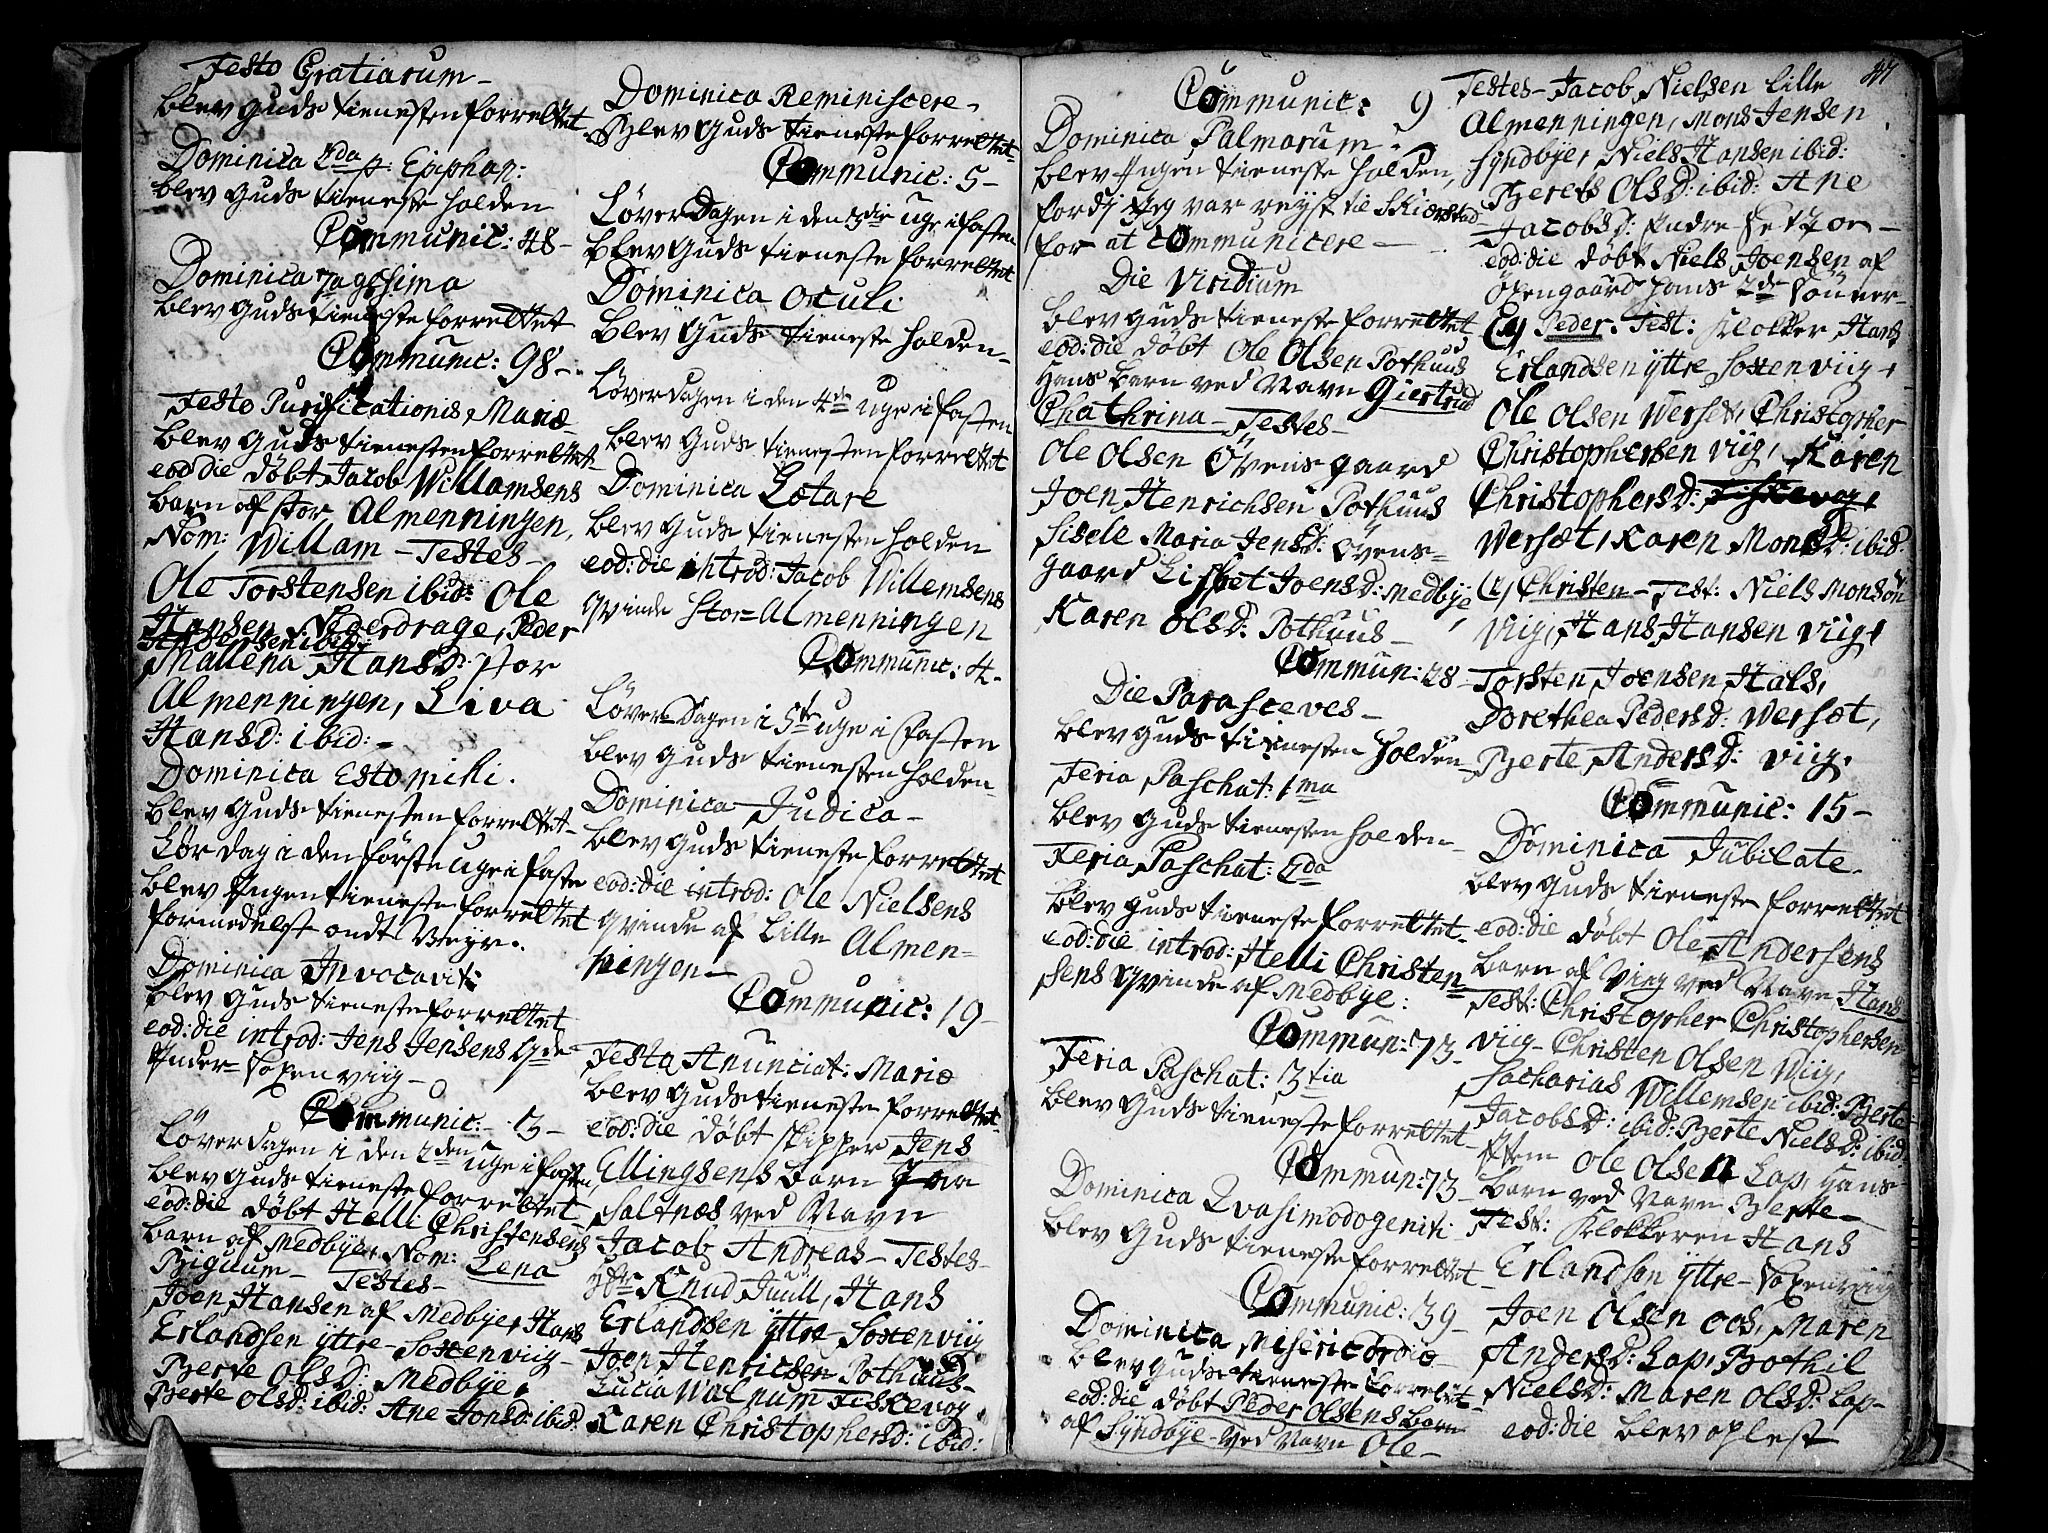 Festo Gratiarum-
blev Guds tienesten forrettet-
Dominica 2da p. Epiphan:
blev Guds tieneste holden
Communic: 48-
Dominica 7agesima
blev Guds tieneste forrettet
Communic: 98-
Festo Purificationis, Mariæ
blev Guds tienesten forrettet-
eod: die døbt Jacob Willamsens
barn af stor Almenningen,
Nom: Willam - Testes-
Ole Torstensen ibid: Ole
Hansen Nverdrage, Peder
ibid:
Mallena Hansd: stor
Almenningen, Liva
Hansd: ibid:-
Dominica Estomihi.
blev Guds tienesten forrettet-
Lørdag i den første uge i faste
blev Ingen tieneste forrettet
formedelst ondt Veyr.
Dominica Invocavit:
blev Guds tieneste forrettet
eod: die introd: Jens Jensens Qde
Inder-Soxenviig-
Communic: 3-
Løverdagen i den 2den uge i fasten,
blev Guds tieneste forrettet
eod: die døbt Helli Christensens
barn af Medbye, Nom: Lena
Biguum- Testes-
Joen Hansen af Medbye, Hans
Erlandsen yttre-Soxenviig-
Berte Olsd: Medbye,
Berte Olsd: ibid: Ane Jonsd: ibid:
Dominica Reminiscere-
Blev Guds tieneste forrettet-
Communic: 5-
Løverdagen i den 3die uge i fasten
blev Guds tieneste forrettet
Dominica Oculi
blev Guds tieneste holden-
Løverdagen i den 4de uge i fasten
blev Guds tienesten forrettet
Dominica Lætare
blev Guds tienesten holden
eod: die introd: Jacob Willemsens
qvinde Stor=Almenningen
Communic: 4-
Løver-Dagen i 5te uge i fasten
blev Guds tienesten holden-
Dominica Judica-
blev Guds tieneste forrettet
eod: die introd: Ole Nielsens
qvinde af Lille Almen-
ningen-
Communic: 19-
Festo Anunciat: Mariæ
blev Guds tieneste forrettet-
eod: die døbt skipper Jens
Ellingsens barn fra
Saltnæs ved Navn
Jacob Andreas- Testes-
Hr Knud Juull, Hans
Erlandsen yttre-Soxenviig
Joen Henricsen Pothuus-
Lucia Walnum Fiskevog,
Karen Christophersd: ibid:
47
Communic: 9
Dominica Palmarum-
blev Ingen tieneste holden,
fordi jeg var reyst til Skiærstad
for at communicere-
Die Viridium
blev Guds tieneste forrettet
eod: die døbt Ole Olsen Pothuus
Hans barn ved Navn Giertrud
Chathrina- Testes-
Ole Olsen Øvensgaard
Joen Henrichsen Pothuus
Sisele Maria Jensd: Øvens=
gaard Lisbet Joensd: Medbye,
Karen Olsd: Pothuus-
Commun: 28-
Die Parasceves-
blev Guds tienesten holden-
Feria Paschat: 1ma
blev Guds tienesten holden-
Feria Paschat: 2da
blev Guds tieneste forrettet-
eod: die introd: Helli Christen
sens qvinde af Medbye:
Commun: 73-
Feria Paschat: 3tia
blev Guds tieneste forrettet-
Commun: 73-
Dominica Qvasimodogenit:
blev Guds tieneste forrettet-
Communic: 39-
Dominica Misericordiæ-
blev Guds tieneste forrettet-
eod: die døbt Peder Olsens barn
af Syndbye ved Navn Ole-
Testes- Jacob Nielsen Lille
Almenningen, Mons Jensen
Syndbye, Niels Hansen ibid:
Berets Olsd: ibid: Ane
Jacobsd: Indre
eod: die døbt Niels Joensen af
Øxengaard hans 2de sønner-
(a) Peder. Test: Klokker Hans
Erlandsen yttre Soxenviig,
Ole Olsen Wersæt, Christopher
Christophersen viig, Karen
Christophersd: Fiskevog,
Wersæt, Karen Monsd: ibid:
(b) Christen- Test: Niels Monsøn
Viig, Hans Hansen Viig,
Torsten Joensen Hals,
Dorethea Pedersd: Wersæt,
Berte Andersd: Viig.
Communic: 15-
Dominica Jubilate-
blev Guds tieneste forrettet
eod: die døbt Ole Andersens
barn af Viig ved Navn Hans
Test: Christopher Christophersen
Viig- Christen Olsen Viig,
Sacharias Willemsen ibid: Berte
Jacobsd: ibid: Berte Nielsd: ibid:
Item Ole Olsen Lap, Hans
barn ved Navn Berte-
Test: Klokkeren Hans
Erlandsen yttre-Soxenviig
Joen Olsen Oos, Maren
Andersd: Lap, Bothil
Nielsd: Maren Olsd: Lap-
eod: die blev oplest